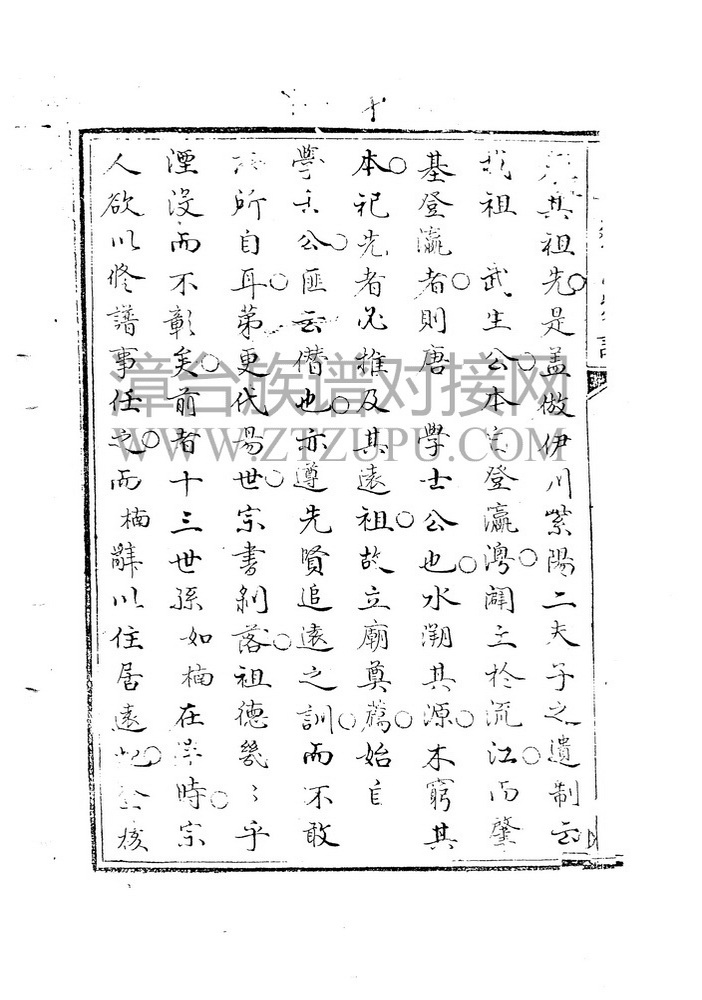 其祖先○是盖倣伊川紫陽二夫子之遺制云
我祖 武生公○本宅登瀛灣○闢土於流江○而肇
基登瀛者○則唐 學士公也○水溯其源○木窮其
本○祀先者必推及其遠祖○故立廟奠薦○始自
學士公○匪云僭也○亦遵先賢追遠之訓○而不敢
所自耳○第更代易世○宗書剝落○祖德幾〻乎
湮沒而不彰矣○前者十三世孫如楠在洋時○宗
人欲以修譜事任之○而楠辭以住居遠○
漳台族谱对接网
WWW.ZTZUPU.COM